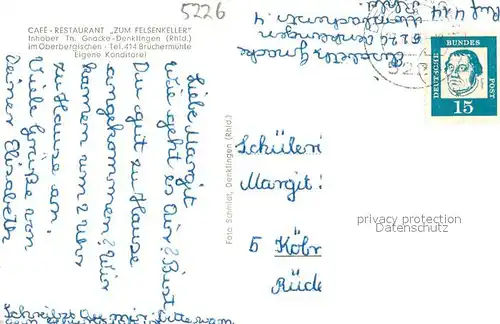 5226
CAFÉ - RESTAURANT "ZUM FELSENKELLER"
Inhaber Th. Gnacke - Denklingen (Rhld.)
im Oberbergischen - Tel. 414 Brüchermühle
Eigene Konditorei
Liebe Margit
wie geht es Dir? Bist
Du gut zu Hause
angekommen? Wir
kamen um 2 Uhr
zu Hause an.
Viele Grüße von
Deiner Elisabeth
Schreibst Du mir bitte
Foto Schmidt, Denklingen (Rhld.)
Elisabeth Gnacke
5221 Denklingen
DEUTSCHE BUNDES POST
15
Schülerin
Margit
5 Köln
privacy protection
Datenschutz